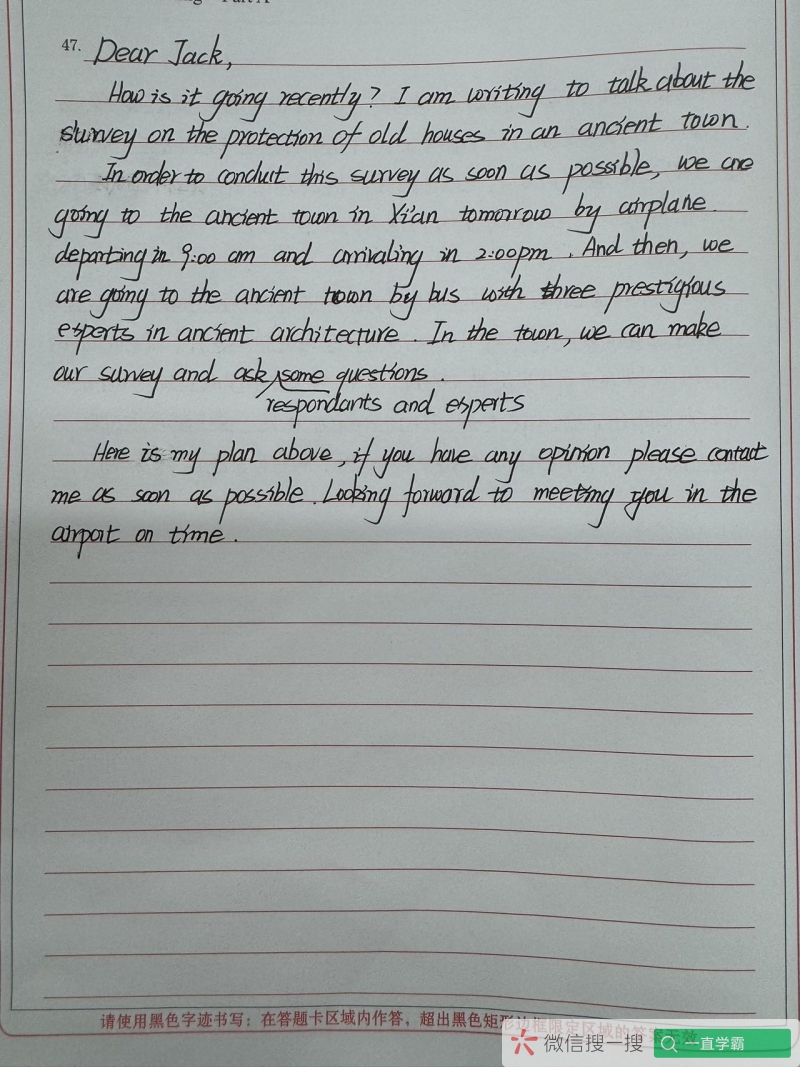 47. Dear Jack,
How is it going recently? I am writing to talk about the
survey on the protection of old houses in an ancient town.
In order to conduit this survey as soon as possible, we are
going to the ancient town in Xi'an tomorrow by airplane
departing in 9:00 am and arrivaling in 2:00pm. And then, we
are going to the ancient town by bus with three prestigious
esperts in ancient architecture. In the town, we can make
our survey and ask some questions.
respondants and esperts
Here is my plan above, if you have any opinion please contact
me as soon as possible. Looking forward to meeting you in the
airport on time.
请使用黑色字迹书写；在答题卡区域内作答，超出黑色矩形边框限定区域的答案无效
微信搜一搜
一直学霸